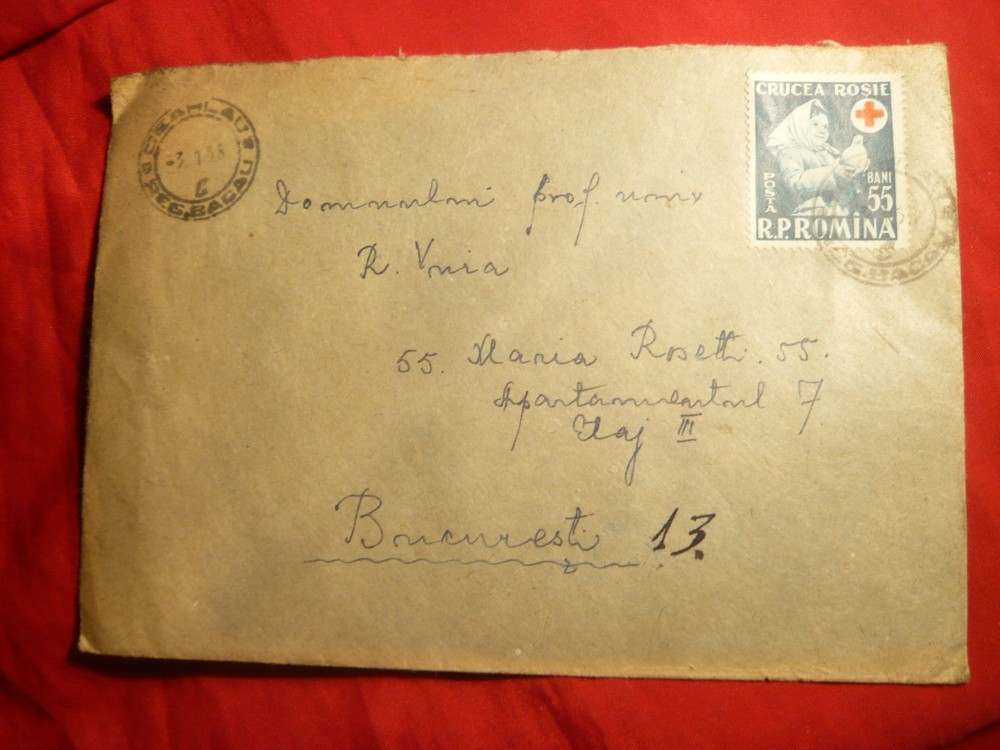 CEAHLAU
-3.1.58
REG. BACAU
CRUCEA ROSIE
POSTA
BANI
55
R.P.ROMINA
Domnului prof. univ
R. Vuia
55. Maria Rosetti. 55.
Apartamentul 7
Etaj III
Bucuresti 13.